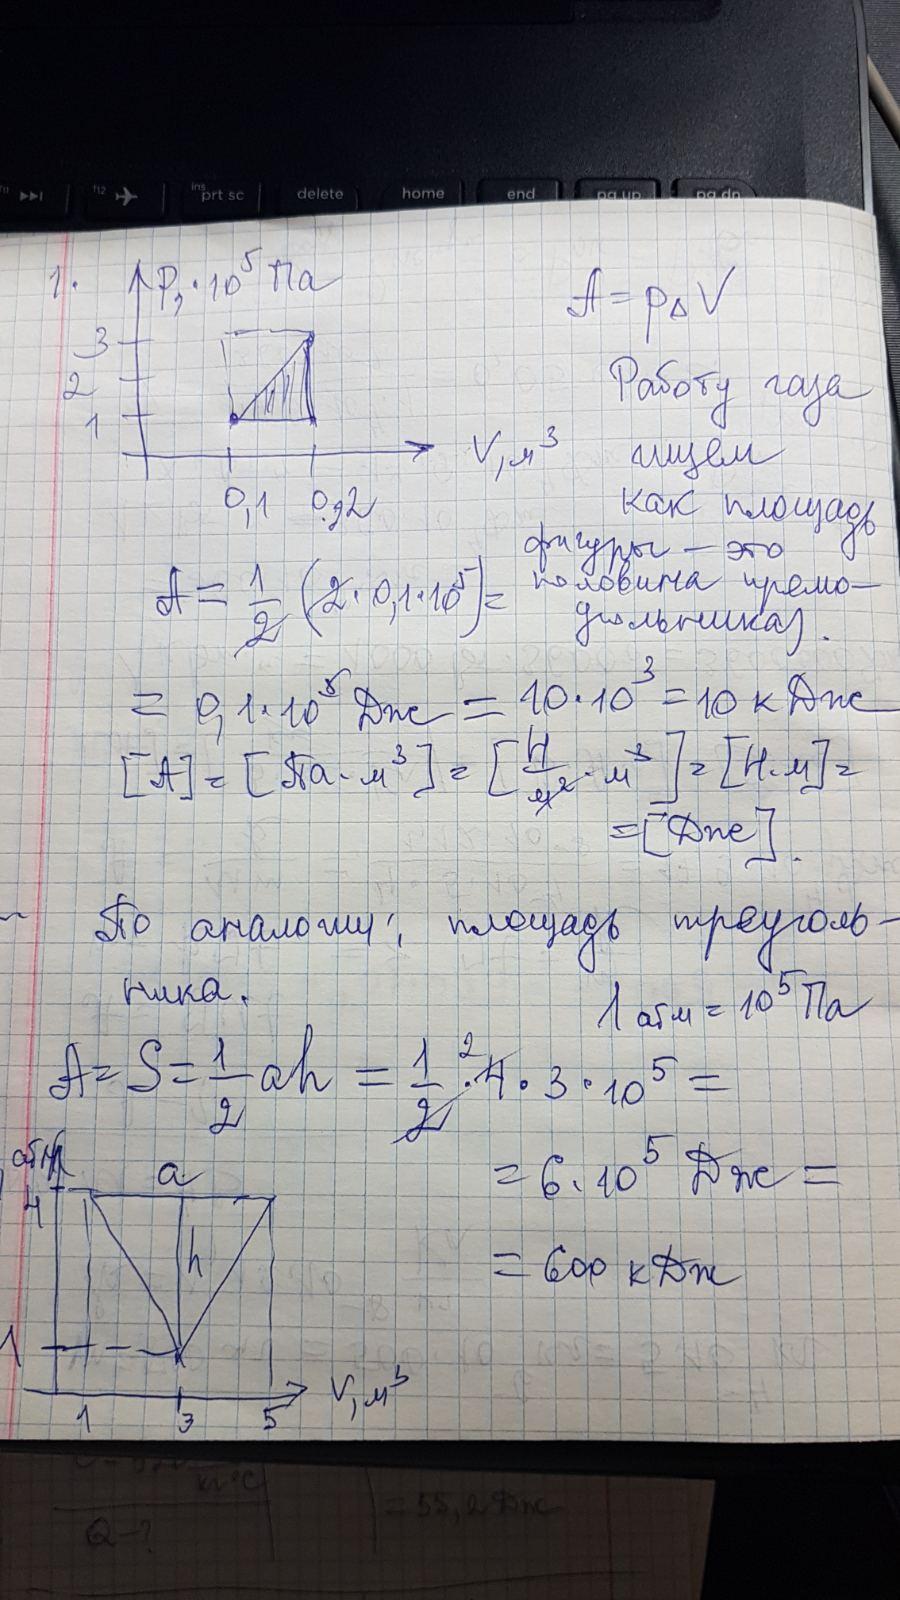 ins
f12 prt sc delete home end pg up pg dn
1. P, · 10⁵ Па
A = pΔV
3
2
1
V, м³
0,1 0,2
Работу газа
ищем
как площадь
фигуры – это
половина прямо-
угольника).
A = 1/2 (2 · 0,1 · 10⁵) =
= 0,1 · 10⁵ Дж = 10 · 10³ = 10 кДж
[A] = [Па · м³] = [Н/м² · м³] = [Н·м] =
= [Дж].
По аналогии, площадь треуголь-
ника.
1 атм = 10⁵ Па
A = S = 1/2 ah = 1/2 · 4 · 3 · 10⁵ =
2
= 6 · 10⁵ Дж =
= 600 кДж
атм
a
4
h
1
V, м³
1 3 5
кг·°С
Q – ?
= 55,2 Дж